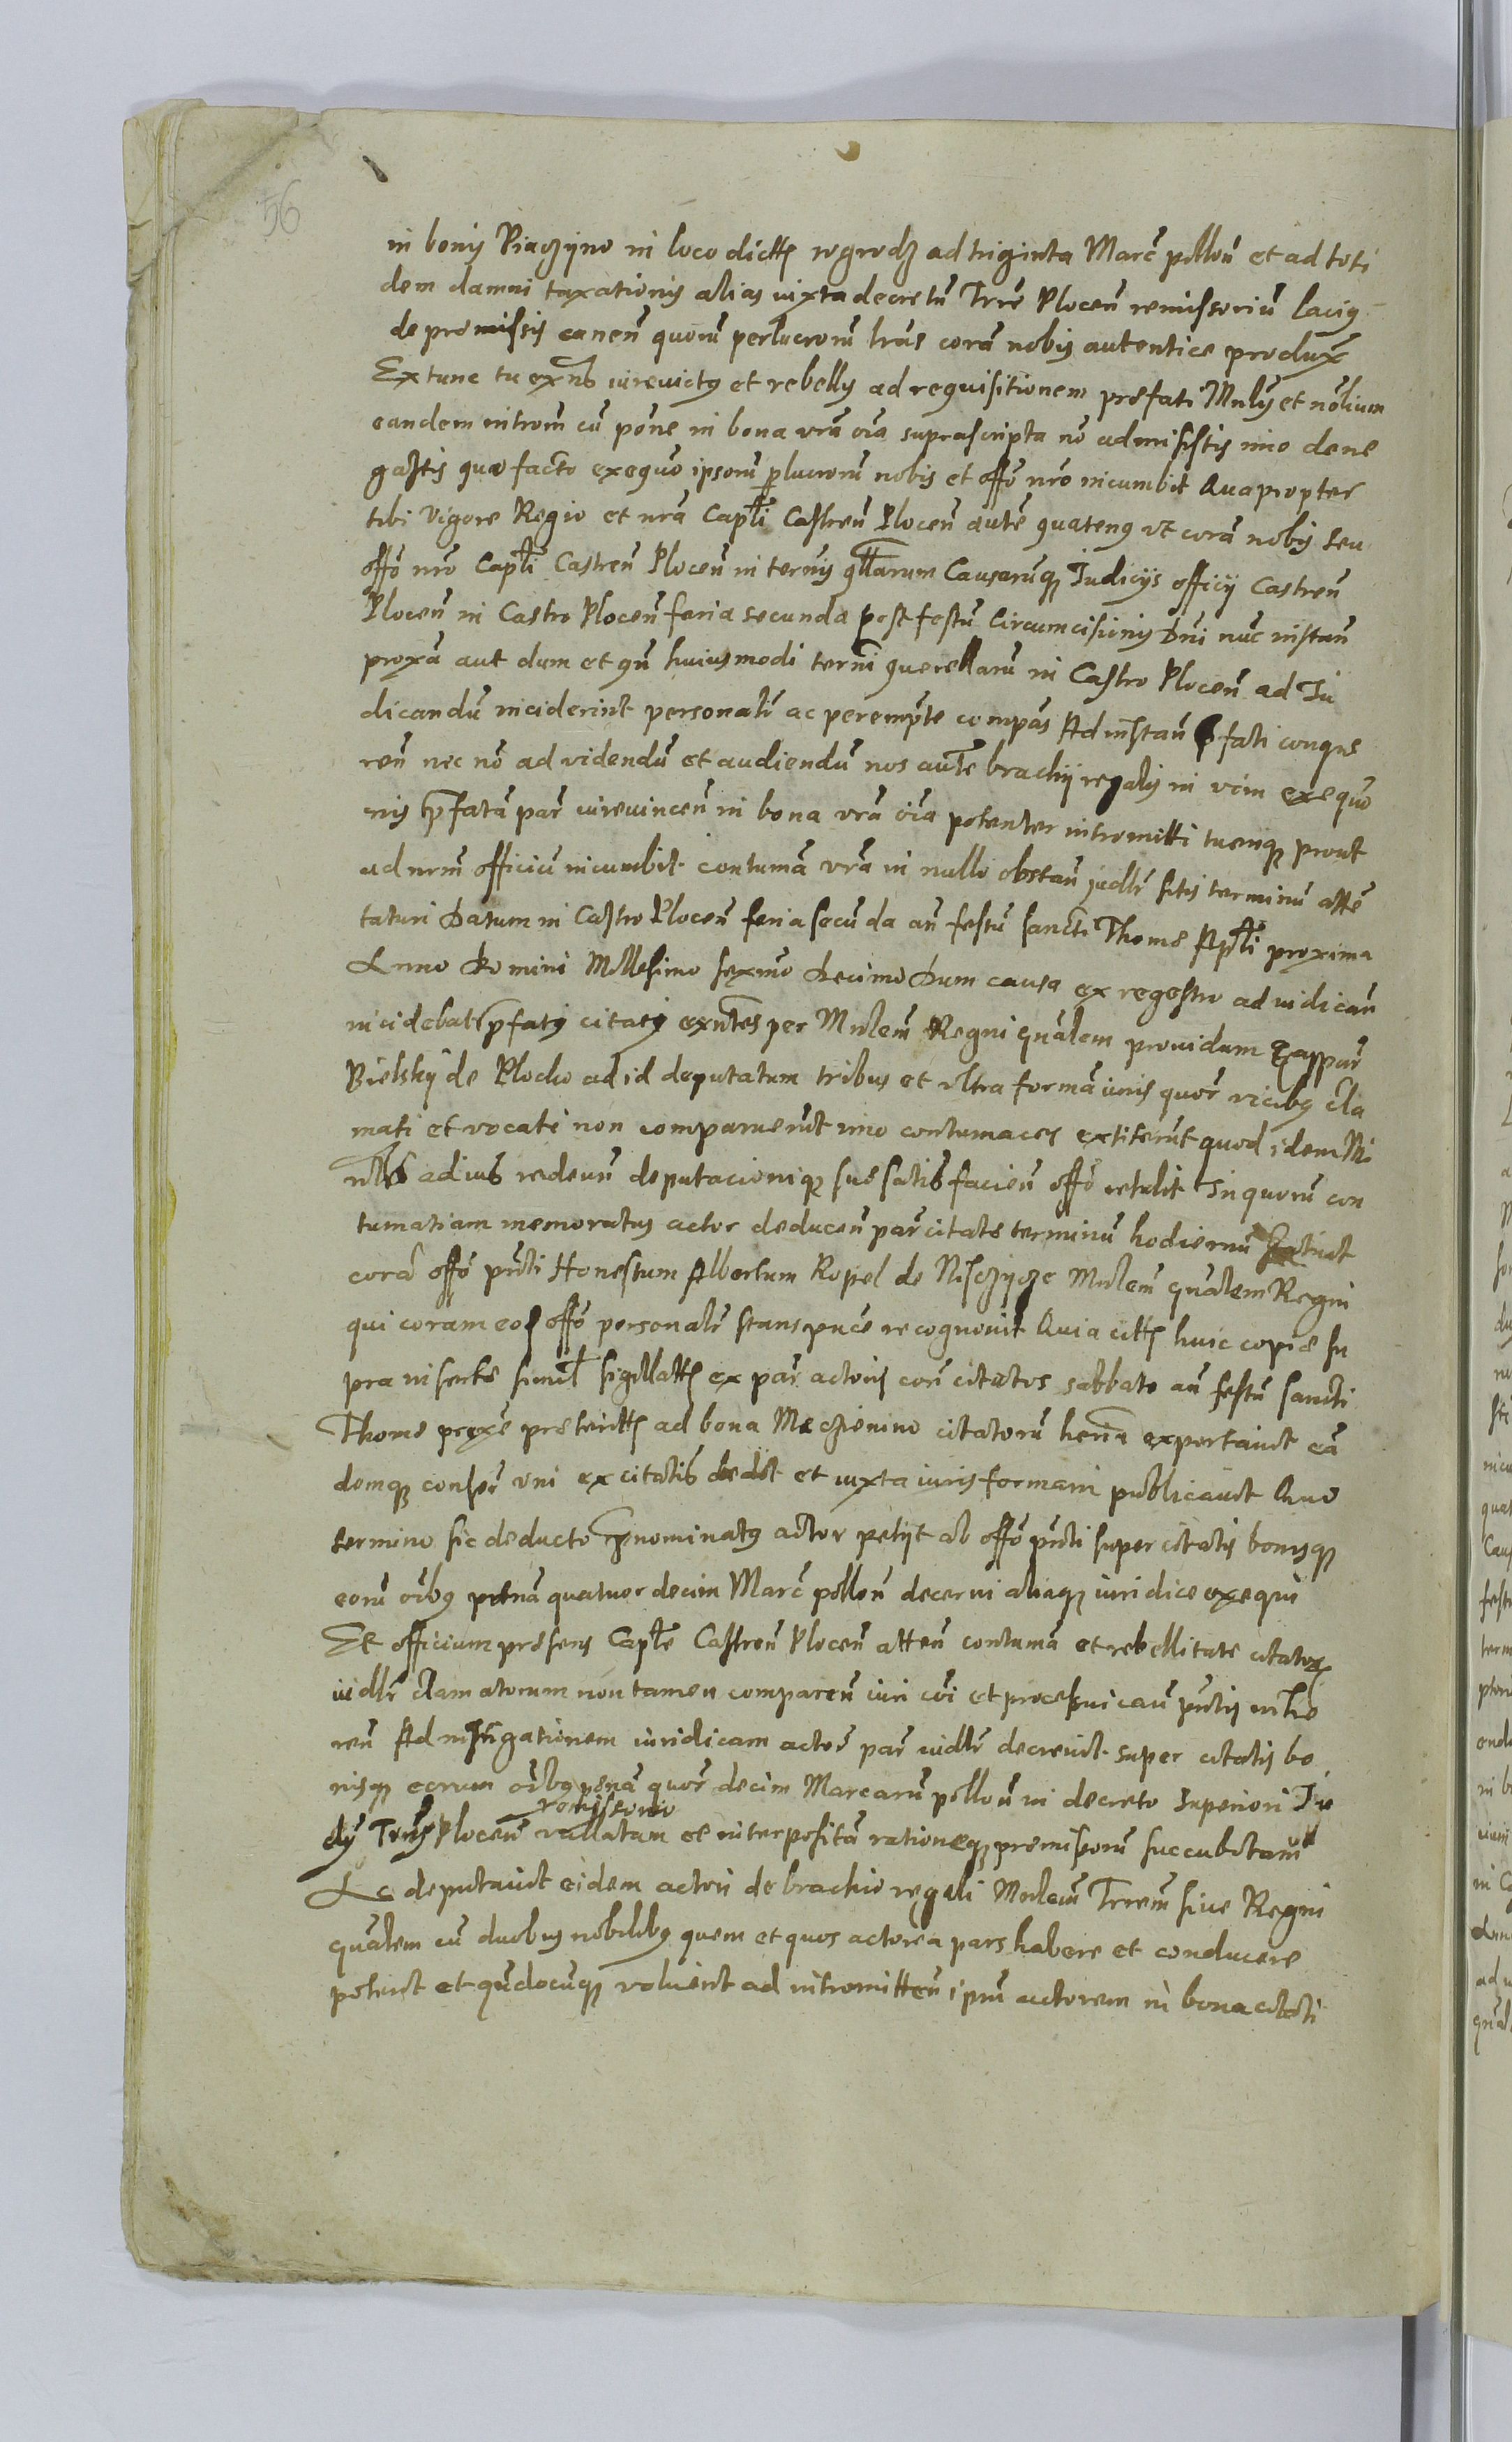 56
in bonis Piaczyno in loco dictt ad triginta Marc pollon et ad toti
dem damni taxationis alias iuxta decretu Trre Plocen remissoriu lacius
de premissis canen quoru perlucroru lras cora nobis autentice produx
Extunc tu exns iurevictus et rebellis ad requisitionem prefati Mnlis et nolium
eandem introm cu pone in bona vra oia suprascripta no admisistis imo dene
gastis quo facto exequo ipsoru plucroru nobis et offo nro incumbit Quapropter
tibi Vigore Regio et nra Capli Castren Plocen aute quatenus vt cora nobis seu
offo nro Capli Castren Plocen in ternis qllarum Causarusq Iudicys officy Castren
Plocen in Castro Plocen feria secunda post festu Circumcisionis Dni nuc instan
proxa aut dum et qn huiusmodi terni querellaru in Castro Plocen ad Iu
dicandu inciderint personali ac perempte compas Ad instan pfati conqus
ren nec no ad videndu et audiendu nos aute brachy regalis in vim exequo
nis pfata par iurevincen in bona vra oia potenter intromitti tuerique prout
ad nrm officiu incumbit contuma vra in nullo obstan judlr sitis terminu atte
taturi Datum in Castro Plocen feria secuda an festu sancti Thome Apli proxima
Anno Domini Millesimo sexmo Decimo Dum causa ex regestro ad iudican
incidebat pfatus citatus exntes per Mnlem Regni gnalem prouidum Caspar
Bielsky de Plocko ad id deputatum tribus et vltra forma iuris quor vicibus cla
mati et vocati non comparuerut imo contumaces extiterut quod idem Mi
nlis ad ius redeun deputacioniq sue satisfacien offo retulit In quoru con
tumatiam memoratus actor deducen par citate terminu hodiernu
cora offo pnti Honestum Albertum Kopel de Nisczycze Mnlem gnalem Regni
qui coram eod offo personalr stans pnce recognouit Quia citt huic copie su
pra inserte simil sigillatt ex par actoris cor citatos sabbato an festu sancti
Thome proxe preteritt ad bona Meczienino citatoru heria exportauit ea
demq conspr vni ex citatis dedit et iuxta iuris formam publicauit Quo
termino sic deducto pnominatus actor petyt ab offo pnti super citatis bonisq
eoru oibus pena quatuor decim Marc pollon decerni aliaq iuridice exequi
Et officium presens Caple Castren Plocen atten contuma et rebellitate citator
iudlr clamatorum non tamen comparen iuri coi et processui cau pntis inhe
ren Ad instigationem iuridicam actor par iudlr decreuit super citatis bo
nisq eorum oibus pena quor decim Marcaru pollon in decreto superiori Iu
dy Trris Plocen remissorio vallatam et interposita rationeq premissoru succubitam
Ac deputauit eidem actori de brachio regali Mnlem Trrem siue Regni
gnalem cu duobus nobilibus quem et quos actorea pars habere et conducere
poterit et qndocuq voluerit ad intromitten ipsu actorem in bona citati